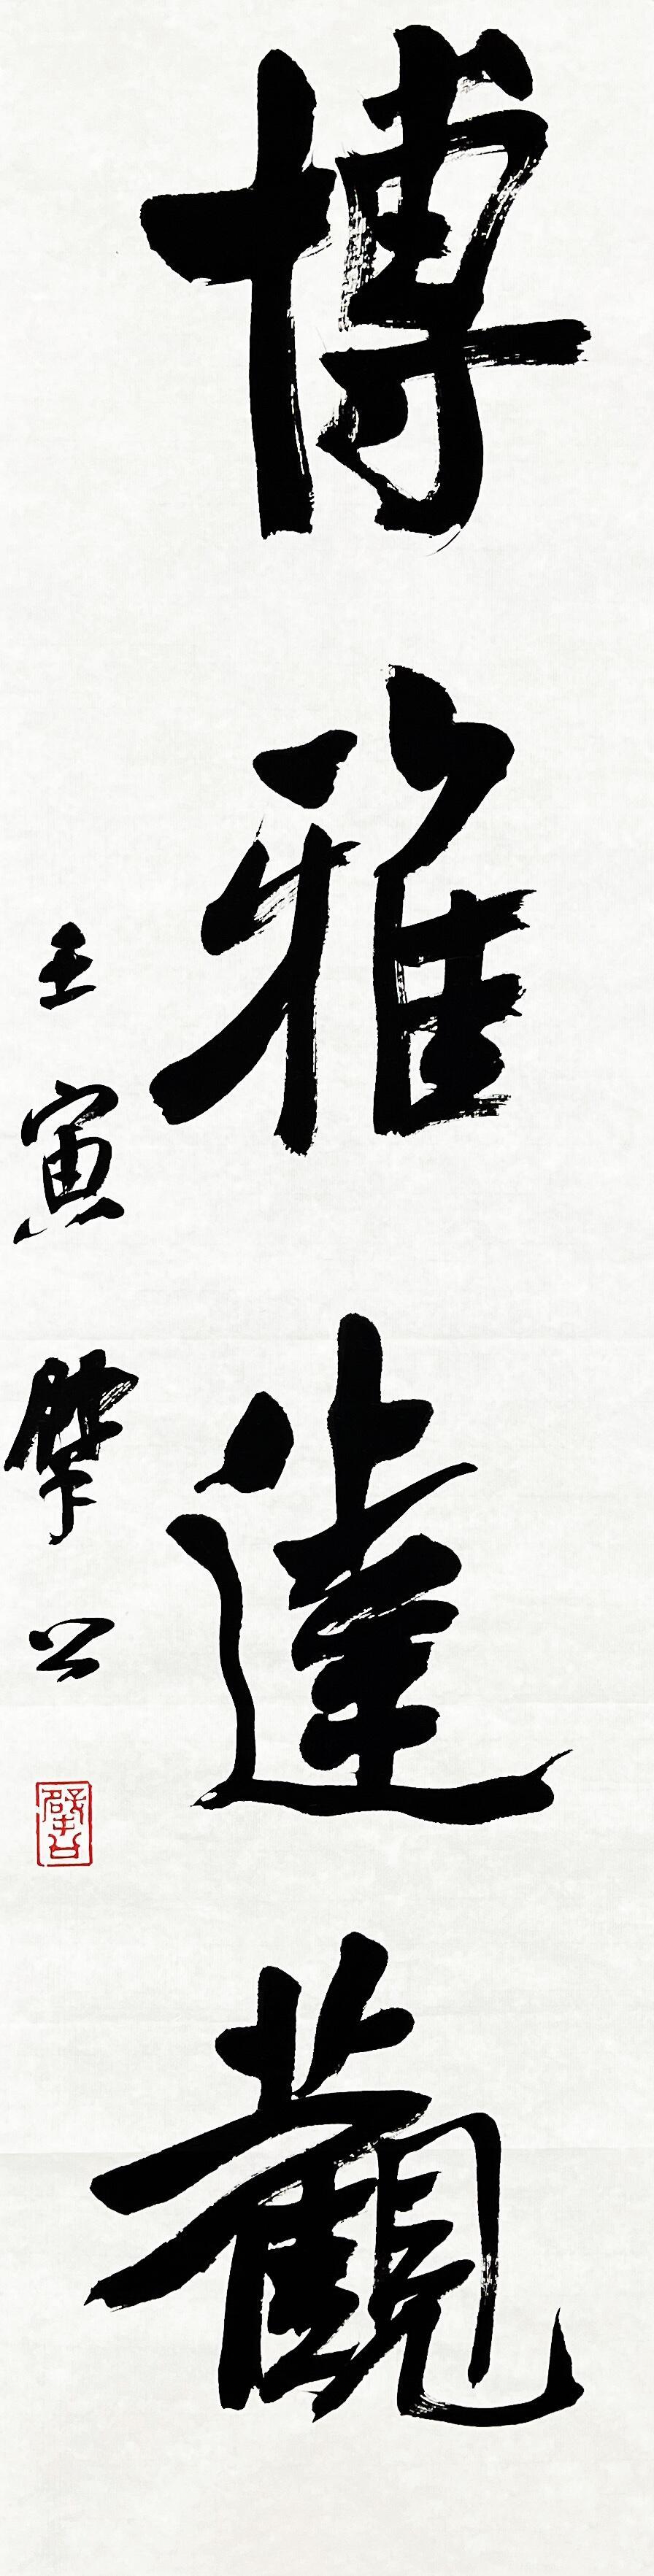 博雅達觀
壬寅擘公